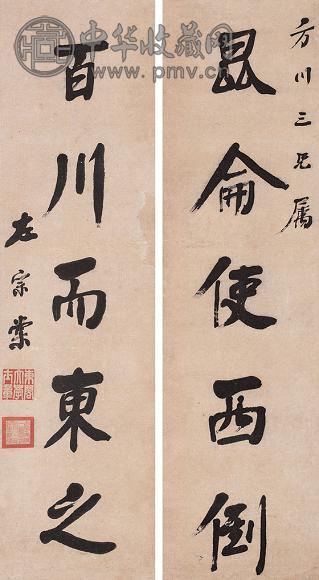 中华收藏网
www.pmv.cn
方川三兄属
昆侖使西倒
百川而東之
左宗棠